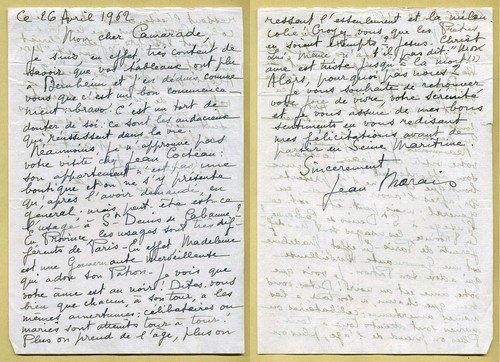 Ce 26 Avril 1962
Mon cher Camarade
Je suis en effet très content de
savoir que vos tableaux ont plu
à Bernheim et j'en déduis comme
vous que c'est un bon commence-
ment. bravo. C'est un tort de
douter de soi. Ce sont les audacieux
qui réussissent dans la vie.
Néanmoins je n'approuve pas
votre visite chez Jean Cocteau.
son appartement n'est pas une
boutique et on ne s'y présente
qu'après l'avoir demandé, en
général. mais peut-être est-ce
l'usage à St Denis de Cabanne!
En Province les usages sont très dif-
férents de Paris - En effet, Madeleine
est une Gouvernante Merveilleuse
qui adore son Patron. Je vois que
votre âme est au noir! Dites-vous
bien que chacun, à son tour, a les
mêmes amertumes: célibataires ou
mariés sont atteints tour à tour.
Plus on prend de l'âge, plus on
ressent l'esseulement et la mélan
colie! Croyez vous que les Prêtres
en soient exempts? Jésus-Christ
Lui Même n'a t'il pas dit: "Mon
âme est triste jusqu'à la mort!!!
Alors, pourquoi pas nous?
Je vous souhaite de retrouver
votre joie de vivre, votre sérénité
et je vous assure de mes bons
sentiments en vous redisant
mes félicitations avant de
en Seine Maritime.
Sincèrement
Jean Marais